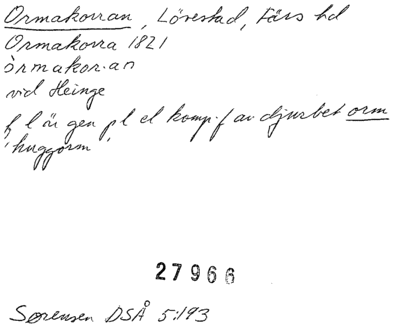 Ormakorran, Lövestad, Färs hd
Ormakorra 1821
òrmakor·an
vid Heinge
f l är gen pl el komp.f av djurbet orm
'huggorm'
27966
Sørensen DSÅ 5:193